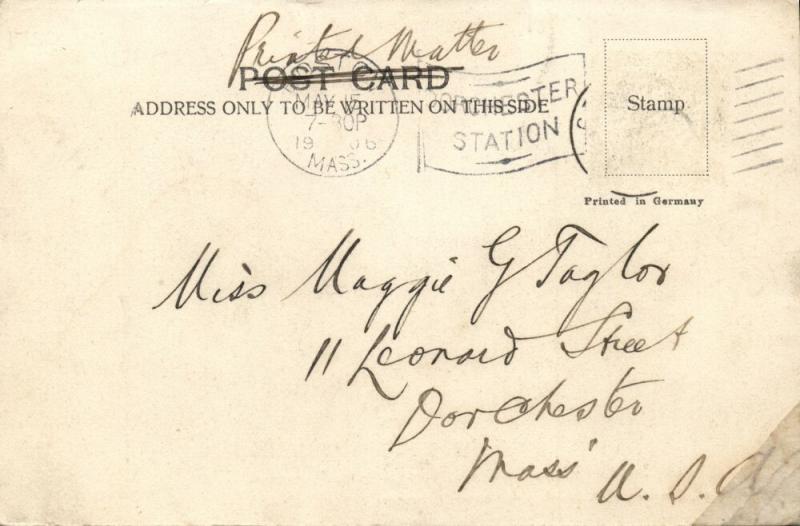 Printed Matter
POST CARD
ADDRESS ONLY TO BE WRITTEN ON THIS SIDE
BOSTON
MAY 15
7-30P
1906
MASS.
DORCHESTER
STATION
Stamp
Printed in Germany
Miss Maggie G Taylor
11 Leonard Street
Dorchester
Mass
U. S. A